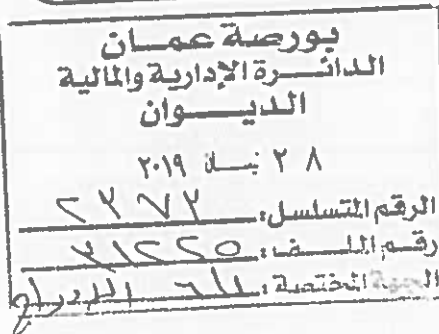 بورصة عمـــان
الدائـــرة الإدارية والمالية
الديـــوان
٢٨ نيسان ٢٠١٩
الرقم المتسلسل: ٢٣٧٢
رقم الملف: ٣١٢٢٥
الجهة المختصة: الإدراج